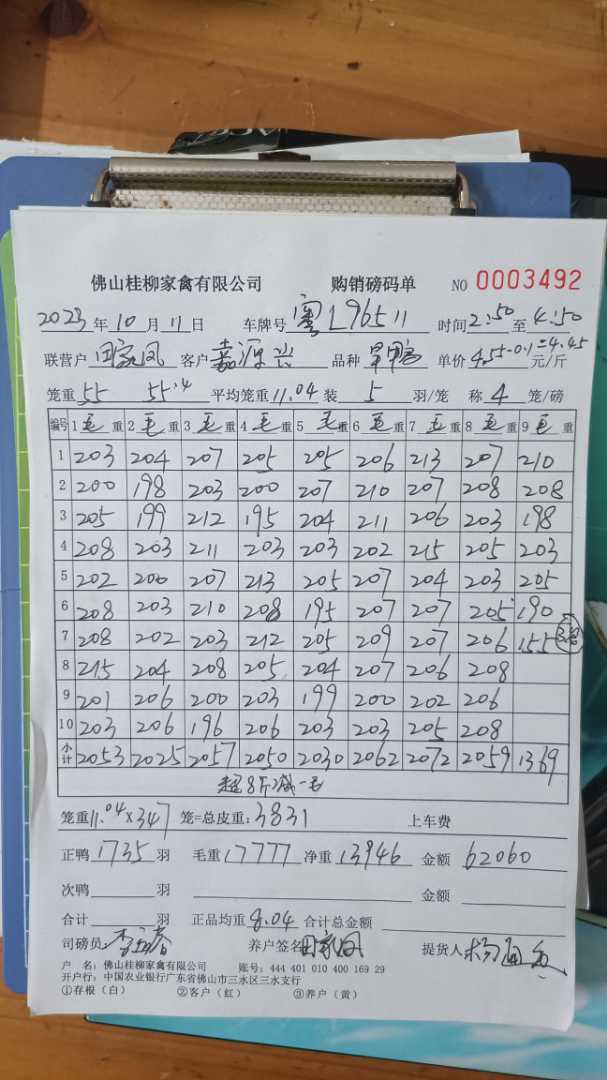 佛山桂柳家禽有限公司 购销磅码单 NO 0003492
2023年10月11日 车牌号 粤L96511 时间2:50至4:50
联营户 田家凤 客户 嘉源 品种 单价 4.55-0.1=4.45 元/斤
笼重 55 55.4 平均笼重 11.04 装 5 羽/笼 称 4 笼/磅
编号 1 毛 重 2 毛 重 3 毛 重 4 毛 重 5 毛 重 6 毛 重 7 毛 重 8 毛 重 9 毛 重
1 203 204 207 205 205 206 213 207 210
2 200 198 203 200 207 210 207 208 208
3 205 199 212 195 204 211 206 203 198
4 208 203 211 203 203 202 215 205 203
5 202 200 207 213 205 207 204 203 205
6 208 203 210 208 195 207 207 205 190
7 208 202 203 212 205 209 207 206 155
8 215 204 208 205 204 207 206 208
9 201 206 200 203 199 200 202 206
10 203 206 196 206 203 203 205 208
小计 2053 2025 2057 2050 2030 2062 2072 2059 1369
超8斤减一毛
笼重 11.04×347 笼=总皮重: 3831 上车费
正鸭 1735 羽 毛重 17777 净重 13946 金额 62060
次鸭 羽 金额
合计 羽 正品均重 8.04 合计总金额
司磅员 养户签名 田家凤 提货人
户 名: 佛山桂柳家禽有限公司 账号: 444 401 010 400 169 29
开户行: 中国农业银行广东省佛山市三水区三水支行
①存根(白) ②客户(红) ③养户(黄)